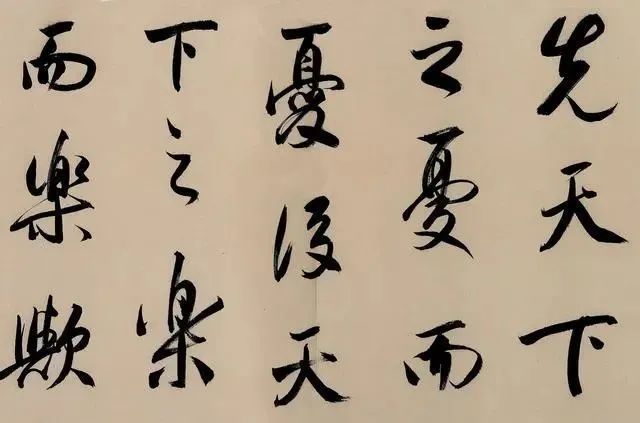 先天下
之憂而
憂後天
下之樂
而樂歟